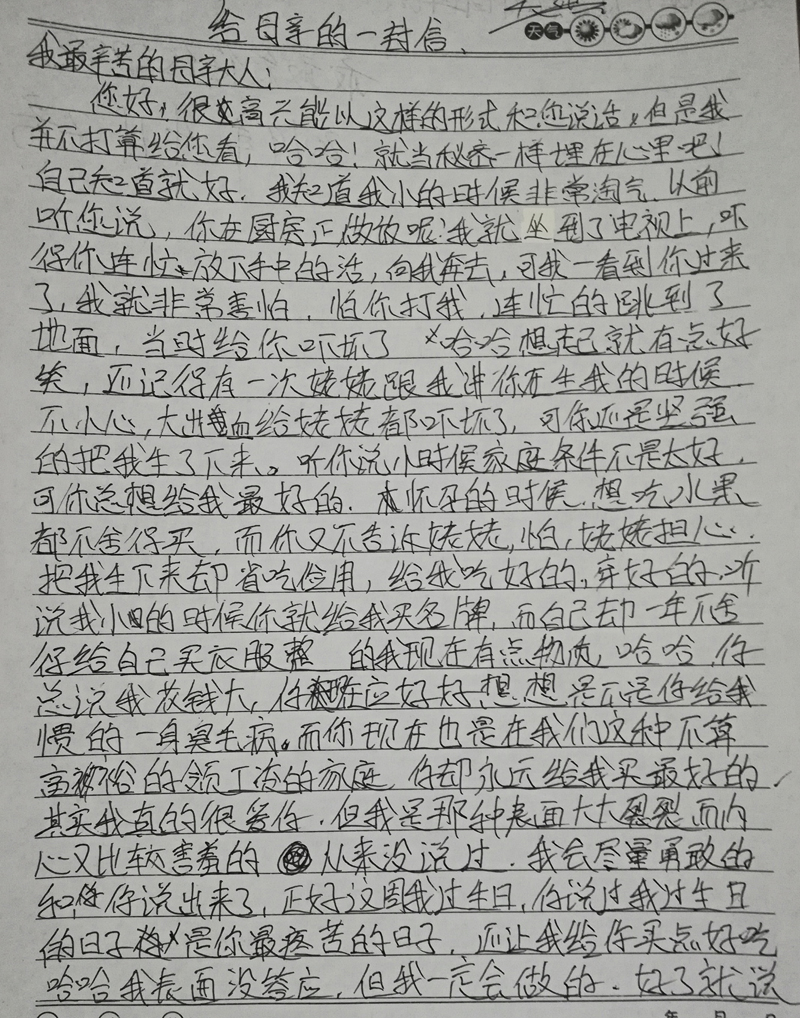 给母亲的一封信.
天气
我最辛苦的母亲大人:
您好,很高兴能以这样的形式和您说话,但是我
并不打算给您看,哈哈!就当秘密一样埋在心里吧!
自己知道就好.我知道我小的时候非常淘气.以前
听您说,你在厨房正做饭呢,我就坐到了电视上,吓
得你连忙放下手中的活,向我奔去,可我一看到你过来
了,我就非常害怕.怕你打我,连忙的跳到了
地面,当时给你吓坏了 哈哈想起就有点好
笑,还记得有一次姥姥跟我讲你在生我的时候
不小心,大出血给姥姥都吓坏了,可你还是坚强
的把我生了下来。听你说小时候家庭条件不是太好.
可你总想给我最好的.怀孕的时候.想吃水果
都不舍得买,而你又不告诉姥姥,怕,姥姥担心.
把我生下来却省吃俭用,给我吃好的,穿好的,听
说我小的时候你就给我买名牌,而自己却一年不舍
得给自己买衣服整 的我现在有点物质,哈哈,你
总说我花钱大,你现在应好好想想是不是你给我
惯的一身臭毛病。而你现在也是在我们这种不算
富裕的领工资的家庭,你却永远给我买最好的
其实我真的很爱你.但我是那种表面大大裂裂而内
心又比较害羞的 从来没说过.我会尽量勇敢的
和你说出来了,正好这周我过生日,你说过我过生日
的日子 是你最疼苦的日子,还让我给你买点好吃
哈哈我表面没答应,但我一定会做的.好了就说
年 月 日